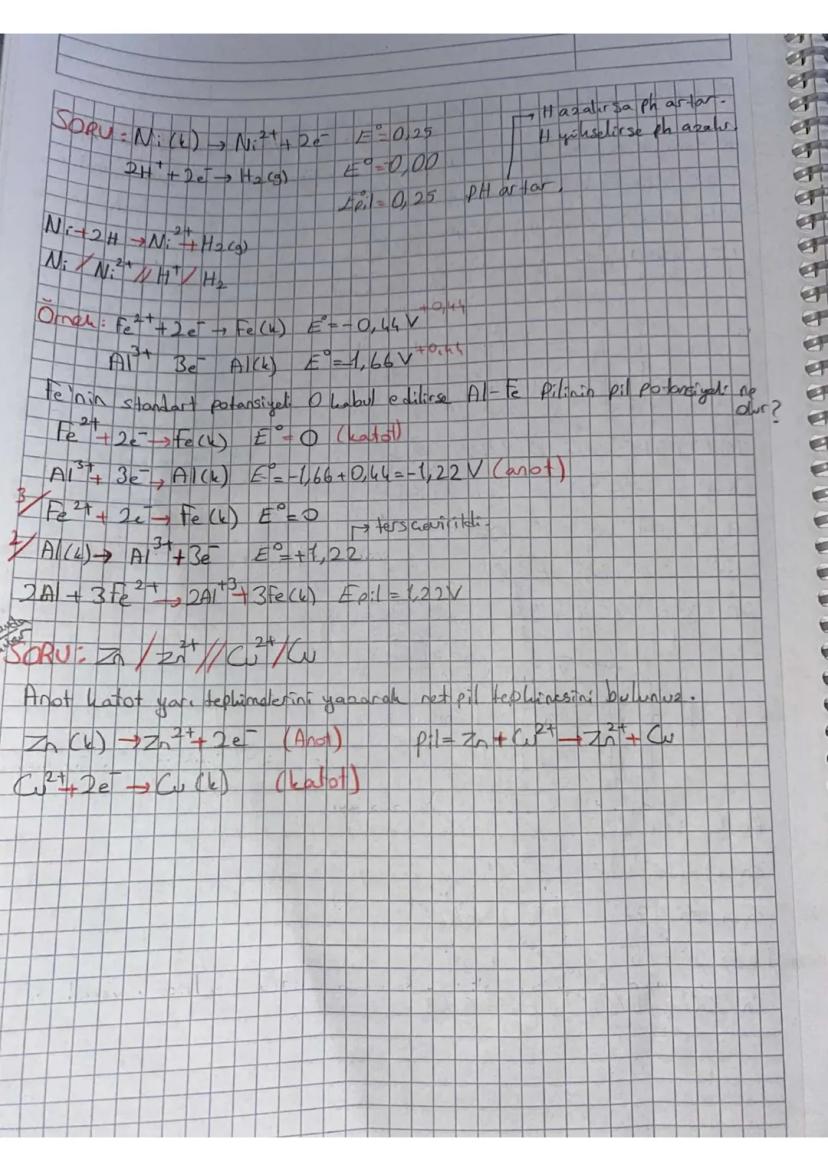 SORU: Ni(k) → Ni²⁺ + 2e⁻ E°=0,25
→ H azalırsa ph artar.
H yükselirse ph azalır
2H⁺ + 2e⁻ → H₂(g) E°=0,00
Epil=0,25 PH artar.
Ni+2H → Ni²⁺+H₂(g)
Ni / Ni²⁺ // H⁺ / H₂
Örnek: Fe²⁺+2e⁻ → Fe(k) E°=-0,44V +0,44
Al³⁺ 3e⁻ Al(k) E°=-1,66V +0,44
Fe'nin standart potansiyeli 0 kabul edilirse Al-Fe pilinin pil potansiyeli ne
olur?
Fe²⁺+2e⁻ → Fe(k) E°=0 (katot)
Al³⁺+ 3e⁻ → Al(k) E°=-1,66+0,44=-1,22V (anot)
3/ Fe²⁺ + 2e⁻ → Fe(k) E°=0
→ ters çevirildi.
2/ Al(k) → Al³⁺+3e⁻ E°=+1,22
2Al + 3Fe²⁺ → 2Al⁺³+3Fe(k) Epil=1,22V
SORU: Zn / Zn²⁺ // Cu²⁺/Cu
Anot katot yarı tepkimelerini yazarak net pil tepkimesini bulunuz.
Zn(k) → Zn²⁺+2e⁻ (Anot) pil= Zn + Cu²⁺ → Zn²⁺ + Cu
Cu²⁺+2e⁻ → Cu(k) (katot)